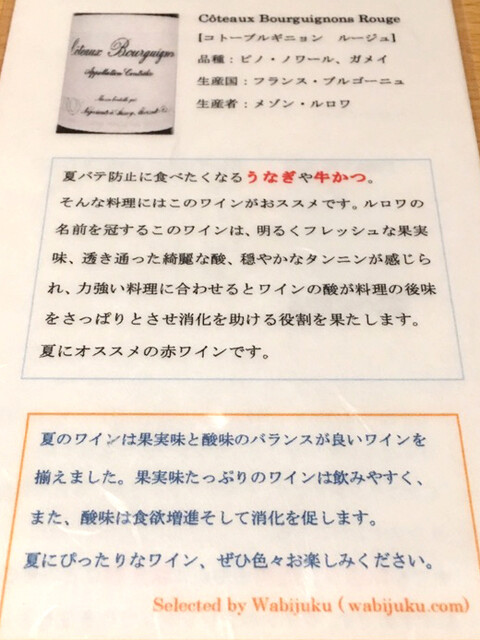 Côteaux Bourguignons Rouge
[コトーブルギニョン　ルージュ]
品種：ピノ・ノワール、ガメイ
生産国：フランス・ブルゴーニュ
生産者：メゾン・ルロワ
Côteaux Bourguignons
Appellation Contrôlée
夏バテ防止に食べたくなるうなぎや牛かつ。
そんな料理にはこのワインがおススメです。ルロワの
名前を冠するこのワインは、明るくフレッシュな果実
味、透き通った綺麗な酸、穏やかなタンニンが感じら
れ、力強い料理に合わせるとワインの酸が料理の後味
をさっぱりとさせ消化を助ける役割を果たします。
夏にオススメの赤ワインです。
夏のワインは果実味と酸味のバランスが良いワインを
揃えました。果実味たっぷりのワインは飲みやすく、
また、酸味は食欲増進そして消化を促します。
夏にぴったりなワイン、ぜひ色々お楽しみください。
Selected by Wabijuku ( wabijuku.com)